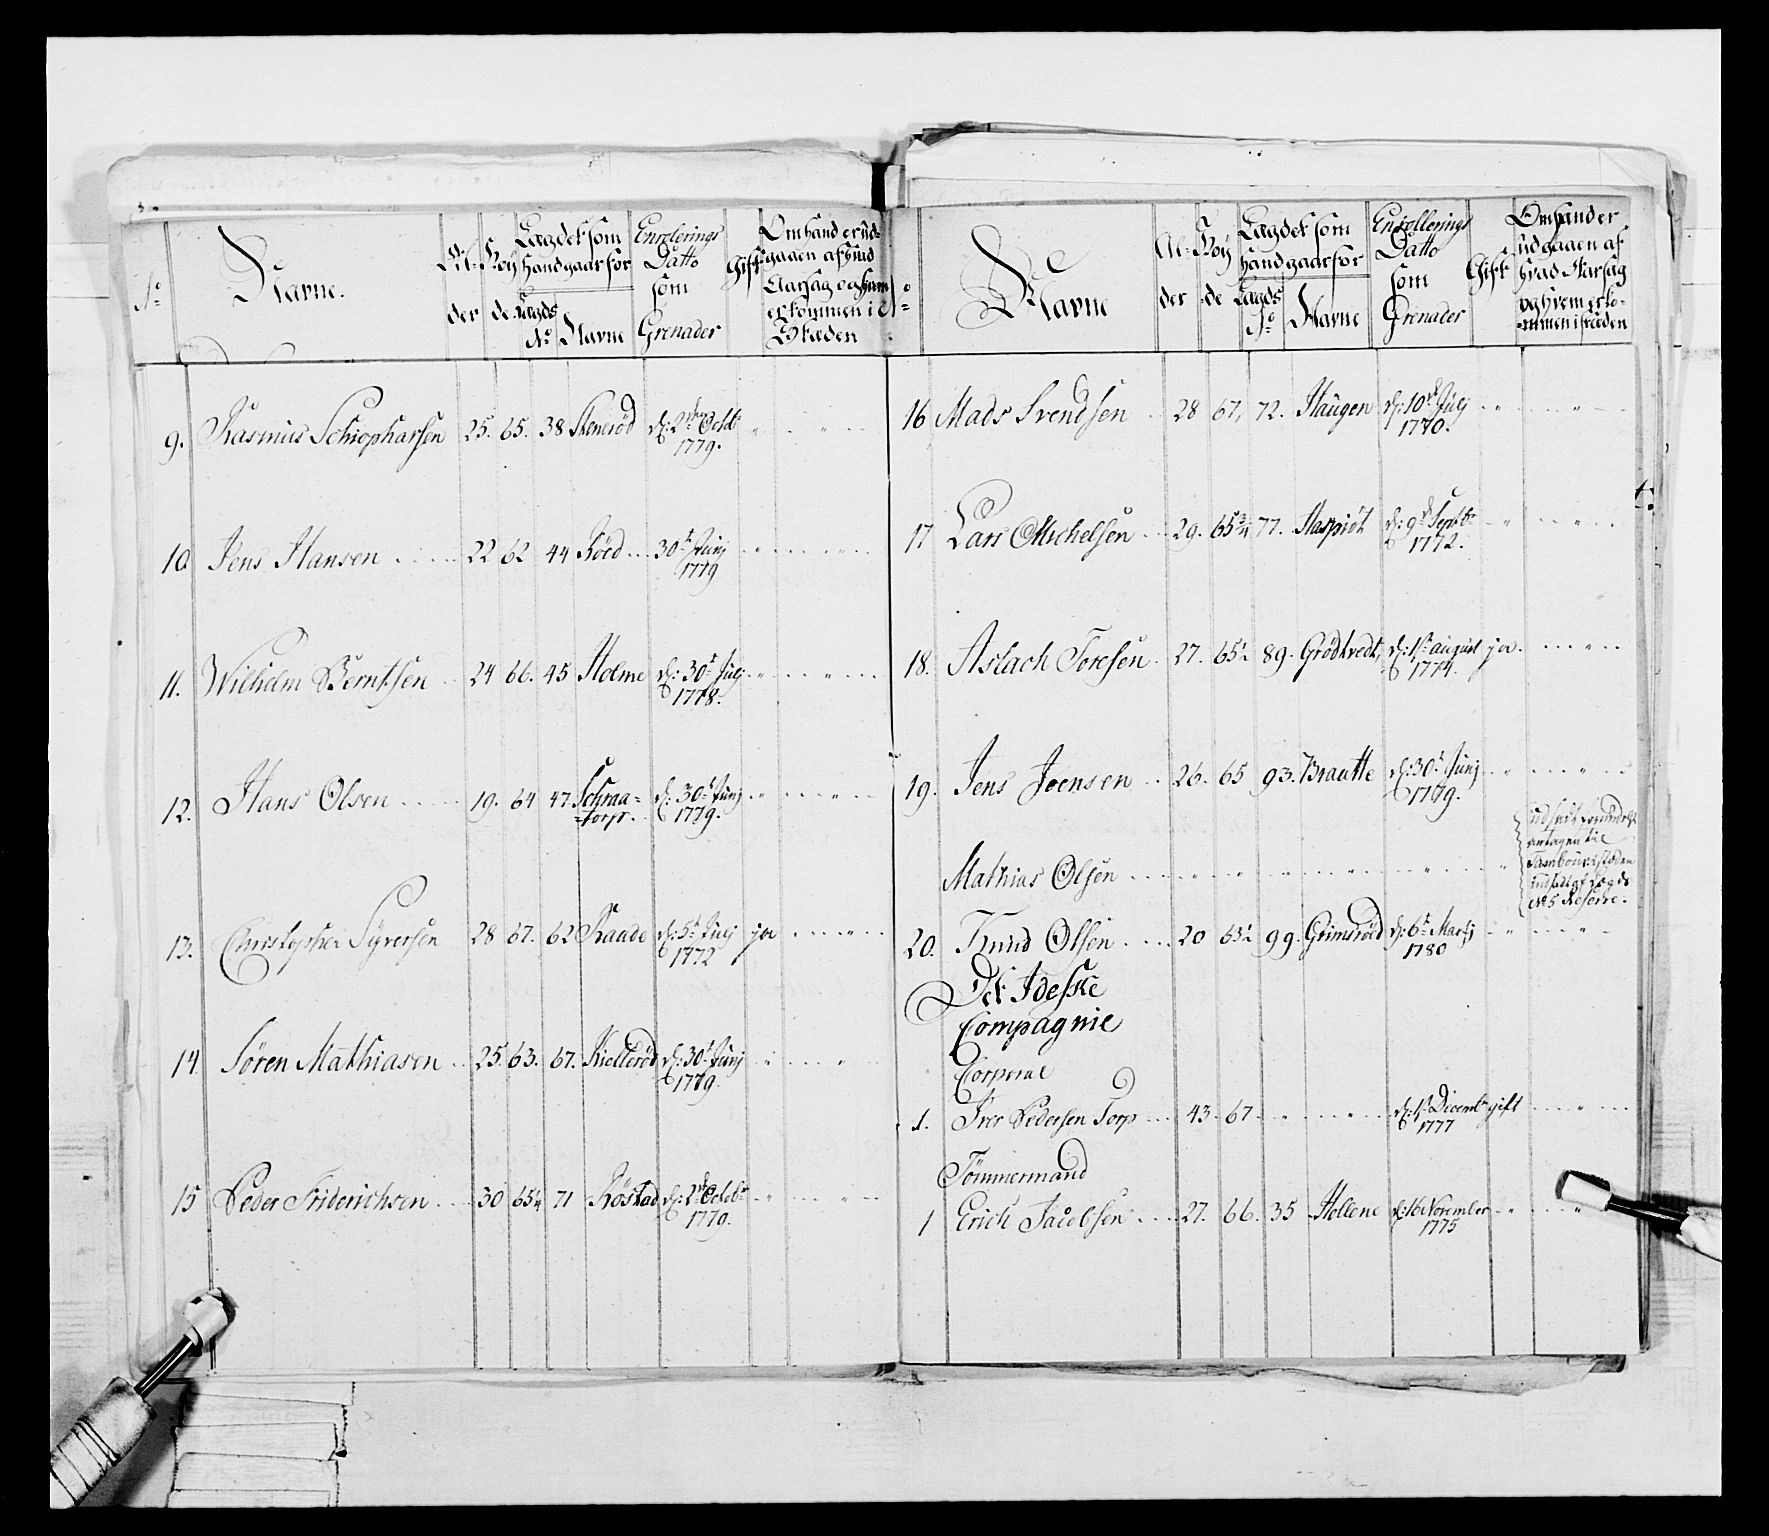 No
Navne.
Al-
der
Höy
de
Lagdet som
hand gaar for
Lagds
No Navne
Enrolerings
Datto
som
Grenader
Gift
Om hand er ud-
gaaen af hvad
Aarsag og hvem
er kommen i
Stæden
9. Rasmus Schiopharsen 25. 65. 38 Stenerød d: 2den Octbr
1779.
10 Jens Hansen 22 62 44 Röed 30t Junj
1779
11. Wilhelm Berntsen 24 66. 45 Holme d: 30t Julj
1778.
12. Hans Olsen 19. 64 47. Schraa=
=torp. d: 30t Junj
1779.
13. Christopher Syversen 28 67. 62 Raade d: 5t Julj ja
1772
14. Søren Mathiasen 25. 63. 67. Kielleröd d: 30t Junj
1779.
15 Peder Friderichsen 30 65¼ 71 Röstad d: 2d Octobr
1779.
No
Navne
Al-
der
Höy
de
Lagdet som
hand gaar for
Lagds
No Navne
Enrollerings
Datto
som
Grenader
Gift
Om hand er
udgaaen af
hvad Aarsag
og hvem er ko-
mmen i stæden
16 Mads Svendsen 28 67. 72. Haugen d: 10d Julj
1770.
17 Lars Michelsen 29. 65¾ 77. d: 9d Septbr
1772.
18. Aslach Toresen 27. 65½ 89. Grödtvedt, d: 1t august ja.
1774.
19. Jens Joensen 26. 65 93. Braatte d: 30t Junj
1779.
Mathias Olsen
antagen til
Tambour i stæden
indsadt af Lægds
No 5 Reserve.
20. Knud Olsen 20 63½ 99. Grimsröed d: 6t Martj
1780
Det Ideske
Compagnie
Corporal
1. Iver Pedersen Torp 43. 67 d: 1t Decembr gift
1777
Tömmermand
1 Erich Jacobsen 27. 66. 35 Hellene d: 16 November
1775